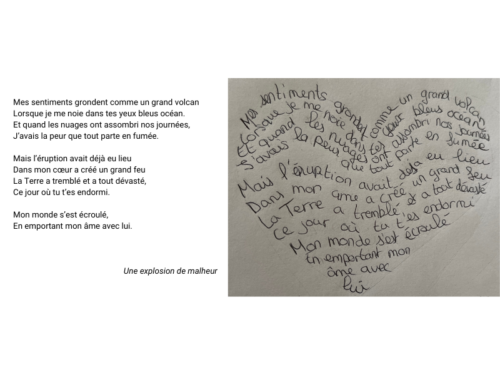 Mes sentiments grondent comme un grand volcan
Lorsque je me noie dans tes yeux bleus océan.
Et quand les nuages ont assombri nos journées,
J'avais la peur que tout parte en fumée.
Mais l'éruption avait déjà eu lieu
Dans mon cœur a créé un grand feu
La Terre a tremblé et a tout dévasté,
Ce jour où tu t'es endormi.
Mon monde s'est écroulé,
En emportant mon âme avec lui.
Une explosion de malheur
Mes sentiments grondent comme un grand volcan
Lorsque je me noie dans tes yeux bleus océan
Et quand les nuages ont assombri nos journées
J'avais la peur que tout parte en fumée
Mais l'éruption avait déjà eu lieu
Dans mon âme a créé un grand feu
La Terre a tremblé et a tout dévasté
Ce jour où tu t'es endormi
Mon monde s'est écroulé
En emportant mon
âme avec
lui